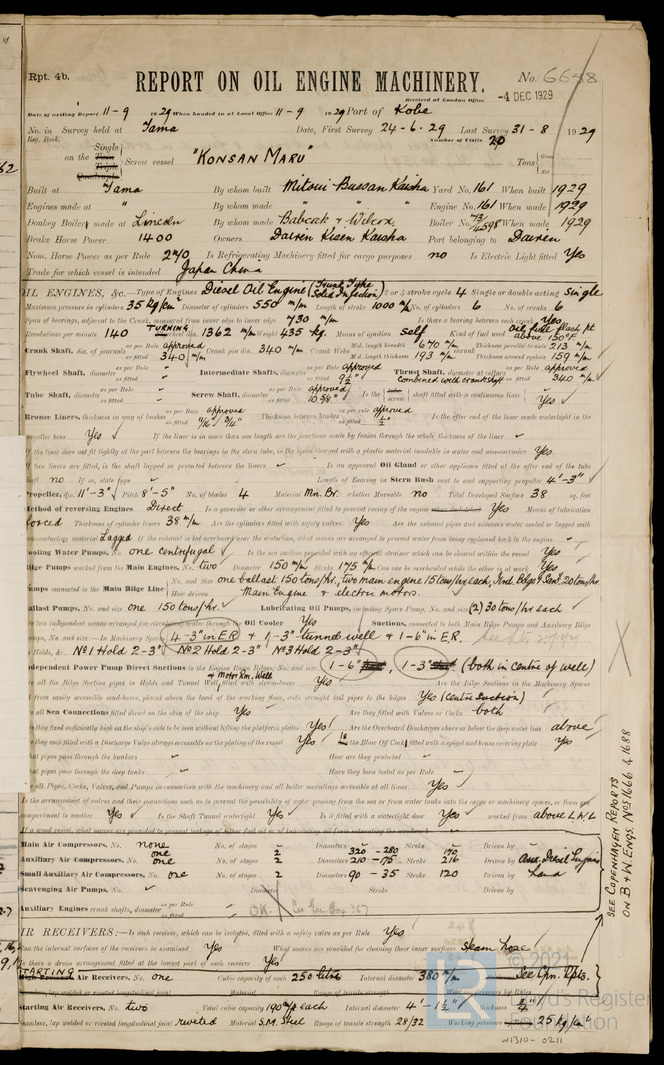 Rpt. 4b.
REPORT ON OIL ENGINE MACHINERY.
No. 6688
Received at London Office
-4 DEC 1929
Date of writing Report 11-9 1929 When handed in at Local Office 11-9 1929 Port of Kobe
No. in Survey held at Tama Date, First Survey 24-6-29 Last Survey 31-8 1929
Reg. Book. Number of Visits 20
on the Single Twin Triple Quadruple Screw vessel "KONSAN MARU" Tons Gross Net
Built at Tama By whom built Mitsui Bussan Kaisha Yard No. 161 When built 1929
Engines made at " By whom made " " " Engine No. 161 When made 1929
Donkey Boilers made at Lincoln By whom made Babcock & Wilcox Boiler No. 73/4598 When made 1929
Brake Horse Power 1400 Owners Dairen Kisen Kaisha Port belonging to Dairen
Nom. Horse Power as per Rule 270 Is Refrigerating Machinery fitted for cargo purposes no Is Electric Light fitted Yes
Trade for which vessel is intended Japan China
OIL ENGINES, &c.—Type of Engines Diesel Oil Engine (Trunk Type Solid Injection) 2 or 4 stroke cycle 4 Single or double acting Single
Maximum pressure in cylinders 35 kg/cm² Diameter of cylinders 550 m/m Length of stroke 1000 m/m No. of cylinders 6 No. of cranks 6
Span of bearings, adjacent to the Crank, measured from inner edge to inner edge 730 m/m Is there a bearing between each crank Yes
Revolutions per minute 140 TURNING wheel dia. 1362 m/m Weight 435 kg. Means of ignition Self Kind of fuel used Oil fuel flash pt. above 150°F.
Crank Shaft, dia. of journals as per Rule approved as fitted 340 m/m Crank pin dia. 340 m/m Crank Webs Mid. length breadth 670 m/m Mid. length thickness 193 m/m shrunk Thickness parallel to axis 213 m/m Thickness around eyehole 159 m/m
Flywheel Shaft, diameter as per Rule as fitted Intermediate Shafts, diameter as per Rule approved as fitted 9½" Thrust Shaft, diameter at collars Combined with crankshaft as per Rule approved as fitted 340 m/m
Tube Shaft, diameter as per Rule as fitted Screw Shaft, diameter as per Rule approved as fitted 10⅝" Is the screw shaft fitted with a continuous liner Yes
Bronze Liners, thickness in way of bushes as per Rule approved as fitted 11/16" 3/4" Thickness between bushes as per rule approved as fitted ½" Is the after end of the liner made watertight in the
propeller boss Yes If the liner is in more than one length are the junctions made by fusion through the whole thickness of the liner
If the liner does not fit tightly at the part between the bearings in the stern tube, is the space charged with a plastic material insoluble in water and non-corrosive Yes
If two liners are fitted, is the shaft lapped or protected between the liners Is an approved Oil Gland or other appliance fitted at the after end of the tube
shaft no If so, state type Length of Bearing in Stern Bush next to and supporting propeller 4'-3"
Propeller, dia. 11'-3" Pitch 8'-5" No. of blades 4 Material Mn. Br. whether Moveable no Total Developed Surface 38 sq. feet
Method of reversing Engines Direct Is a governor or other arrangement fitted to prevent racing of the engine Yes Means of lubrication
forced Thickness of cylinder liners 38 m/m Are the cylinders fitted with safety valves Yes Are the exhaust pipes and silencers water cooled or lagged with
non-conducting material Lagged If the exhaust is led overboard near the waterline, what means are arranged to prevent water from being syphoned back to the engine
Cooling Water Pumps, No. one centrifugal Is the sea suction provided with an efficient strainer which can be cleared within the vessel Yes
Bilge Pumps worked from the Main Engines, No. two Diameter 150 m/m Stroke 175 m/m Can one be overhauled while the other is at work Yes
Pumps connected to the Main Bilge Line No. and Size one ballast 150 tons/hr., two main engine 15 tons/hr each, Ind. Bilge & San. 20 tons/hr.
How driven Main Engine & electric motors.
Ballast Pumps, No. and size one 150 tons/hr. Lubricating Oil Pumps, including Spare Pump, No. and size (2) 30 tons/hr each
Are two independent means arranged for circulating water through the Oil Cooler Yes Suctions, connected to both Main Bilge Pumps and Auxiliary Bilge
Pumps, No. and size:—In Machinery Spaces 4-3" in E.R. & 1-3" tunnel well & 1-6" in E.R.
In Holds, &c. No 1 Hold 2-3" No 2 Hold 2-3" No 3 Hold 2-3"
Independent Power Pump Direct Suctions to the Engine Room Bilges, No. and size 1-6" 1-3" (both in centre of well)
Are all the Bilge Suction pipes in Holds and Tunnel Well fitted with strum-boxes Yes Are the Bilge Suctions in the Machinery Spaces
from easily accessible mud-boxes, placed above the level of the working floor, with straight tail pipes to the bilges Yes (centre Suction)
Are all Sea Connections fitted direct on the skin of the ship Yes Are they fitted with Valves or Cocks both
Are they fixed sufficiently high on the ship's side to be seen without lifting the platform plates Yes Are the Overboard Discharges above or below the deep water line above
Are they each fitted with a Discharge Valve always accessible on the plating of the vessel Yes Is the Blow Off Cock fitted with a spigot and brass covering plate Yes
What pipes pass through the bunkers How are they protected
What pipes pass through the deep tanks Have they been tested as per Rule
Are all Pipes, Cocks, Valves, and Pumps in connection with the machinery and all boiler mountings accessible at all times Yes
Is the arrangement of valves and their connections such as to prevent the possibility of water passing from the sea or from water tanks into the cargo or machinery spaces, or from one
compartment to another Yes Is the Shaft Tunnel watertight Yes Is it fitted with a watertight door Yes worked from above L.W.L
Main Air Compressors, No. none No. of stages Diameters Stroke Driven by
Auxiliary Air Compressors, No. one one No. of stages 2 2 Diameters 320 - 280 210 - 175 Stroke 175 216 Driven by Aux. Diesel Engine
Small Auxiliary Air Compressors, No. one No. of stages 2 Diameters 90 - 35 Stroke 120 Driven by hand
Scavenging Air Pumps, No. Diameter Stroke Driven by
Auxiliary Engines crank shafts, diameter as per Rule as fitted OK.
AIR RECEIVERS:—Is each receiver, which can be isolated, fitted with a safety valve as per Rule Yes
Can the internal surfaces of the receivers be examined Yes What means are provided for cleaning their inner surfaces Steam hose
Is there a drain arrangement fitted at the lowest part of each receiver Yes
STARTING
High Pressure Air Receivers, No. one Cubic capacity of each 250 litres Internal diameter 380 m/m See Cpn. Rpts.
Seamless, lap welded or riveted longitudinal joint Material Range of tensile strength Working pressure by Rules
Starting Air Receivers, No. two Total cubic capacity 190 each Internal diameter 4'-1½" thickness ¾"
Seamless, lap welded or riveted longitudinal joint riveted Material S.M. Steel Range of tensile strength 28/32 Working pressure 25 kg/c²
SEE COPENHAGEN REPORTS
ON B + W ENGS. NOS 1666 & 1688
© 2021
Lloyd's Register
Foundation
W1310-0211